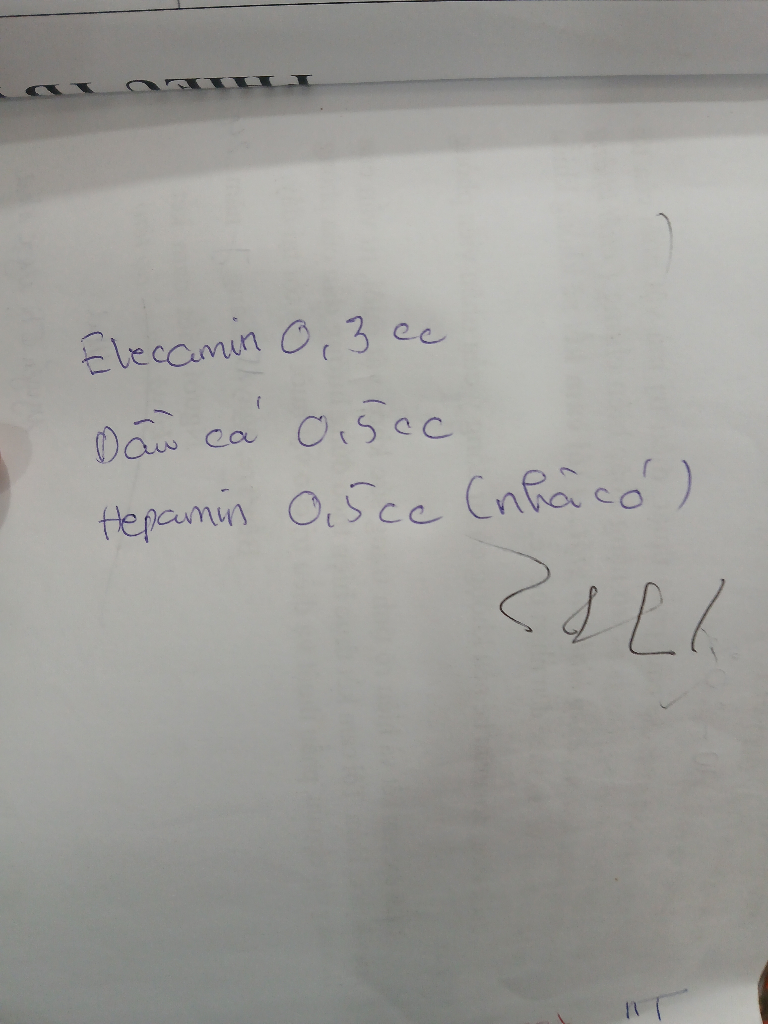 Elecamin 0,3 cc
Dầu cá 0,5 cc
Hepamin 0,5 cc (nhà có)